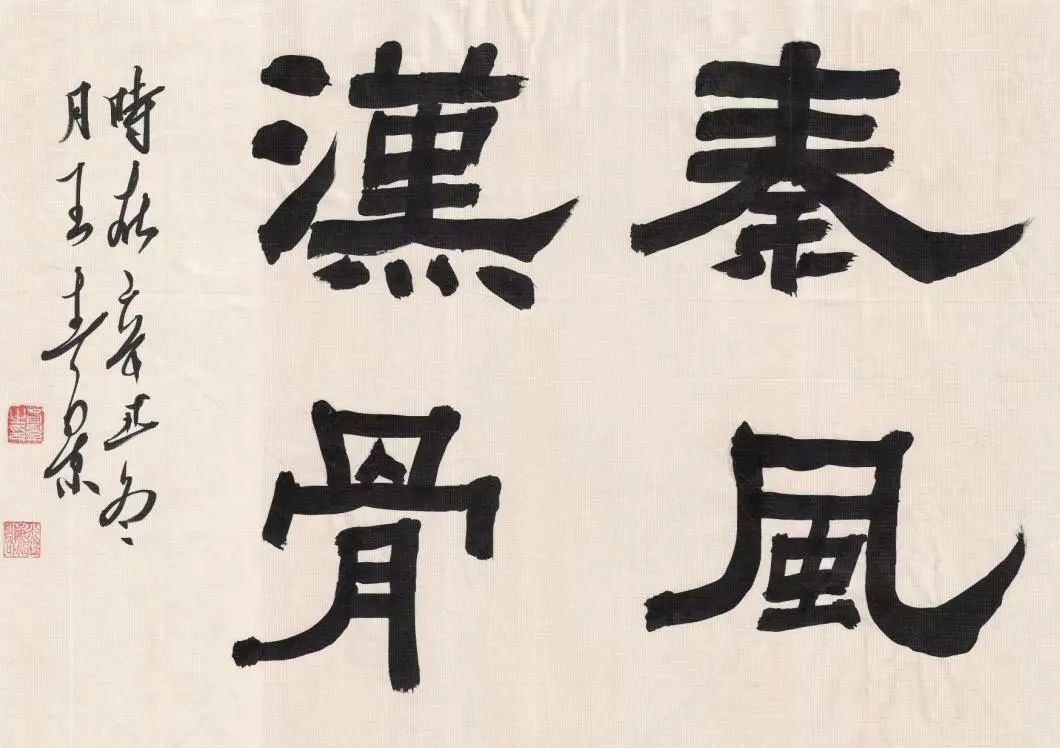 秦風
漢骨
時在辛丑冬
月王春景